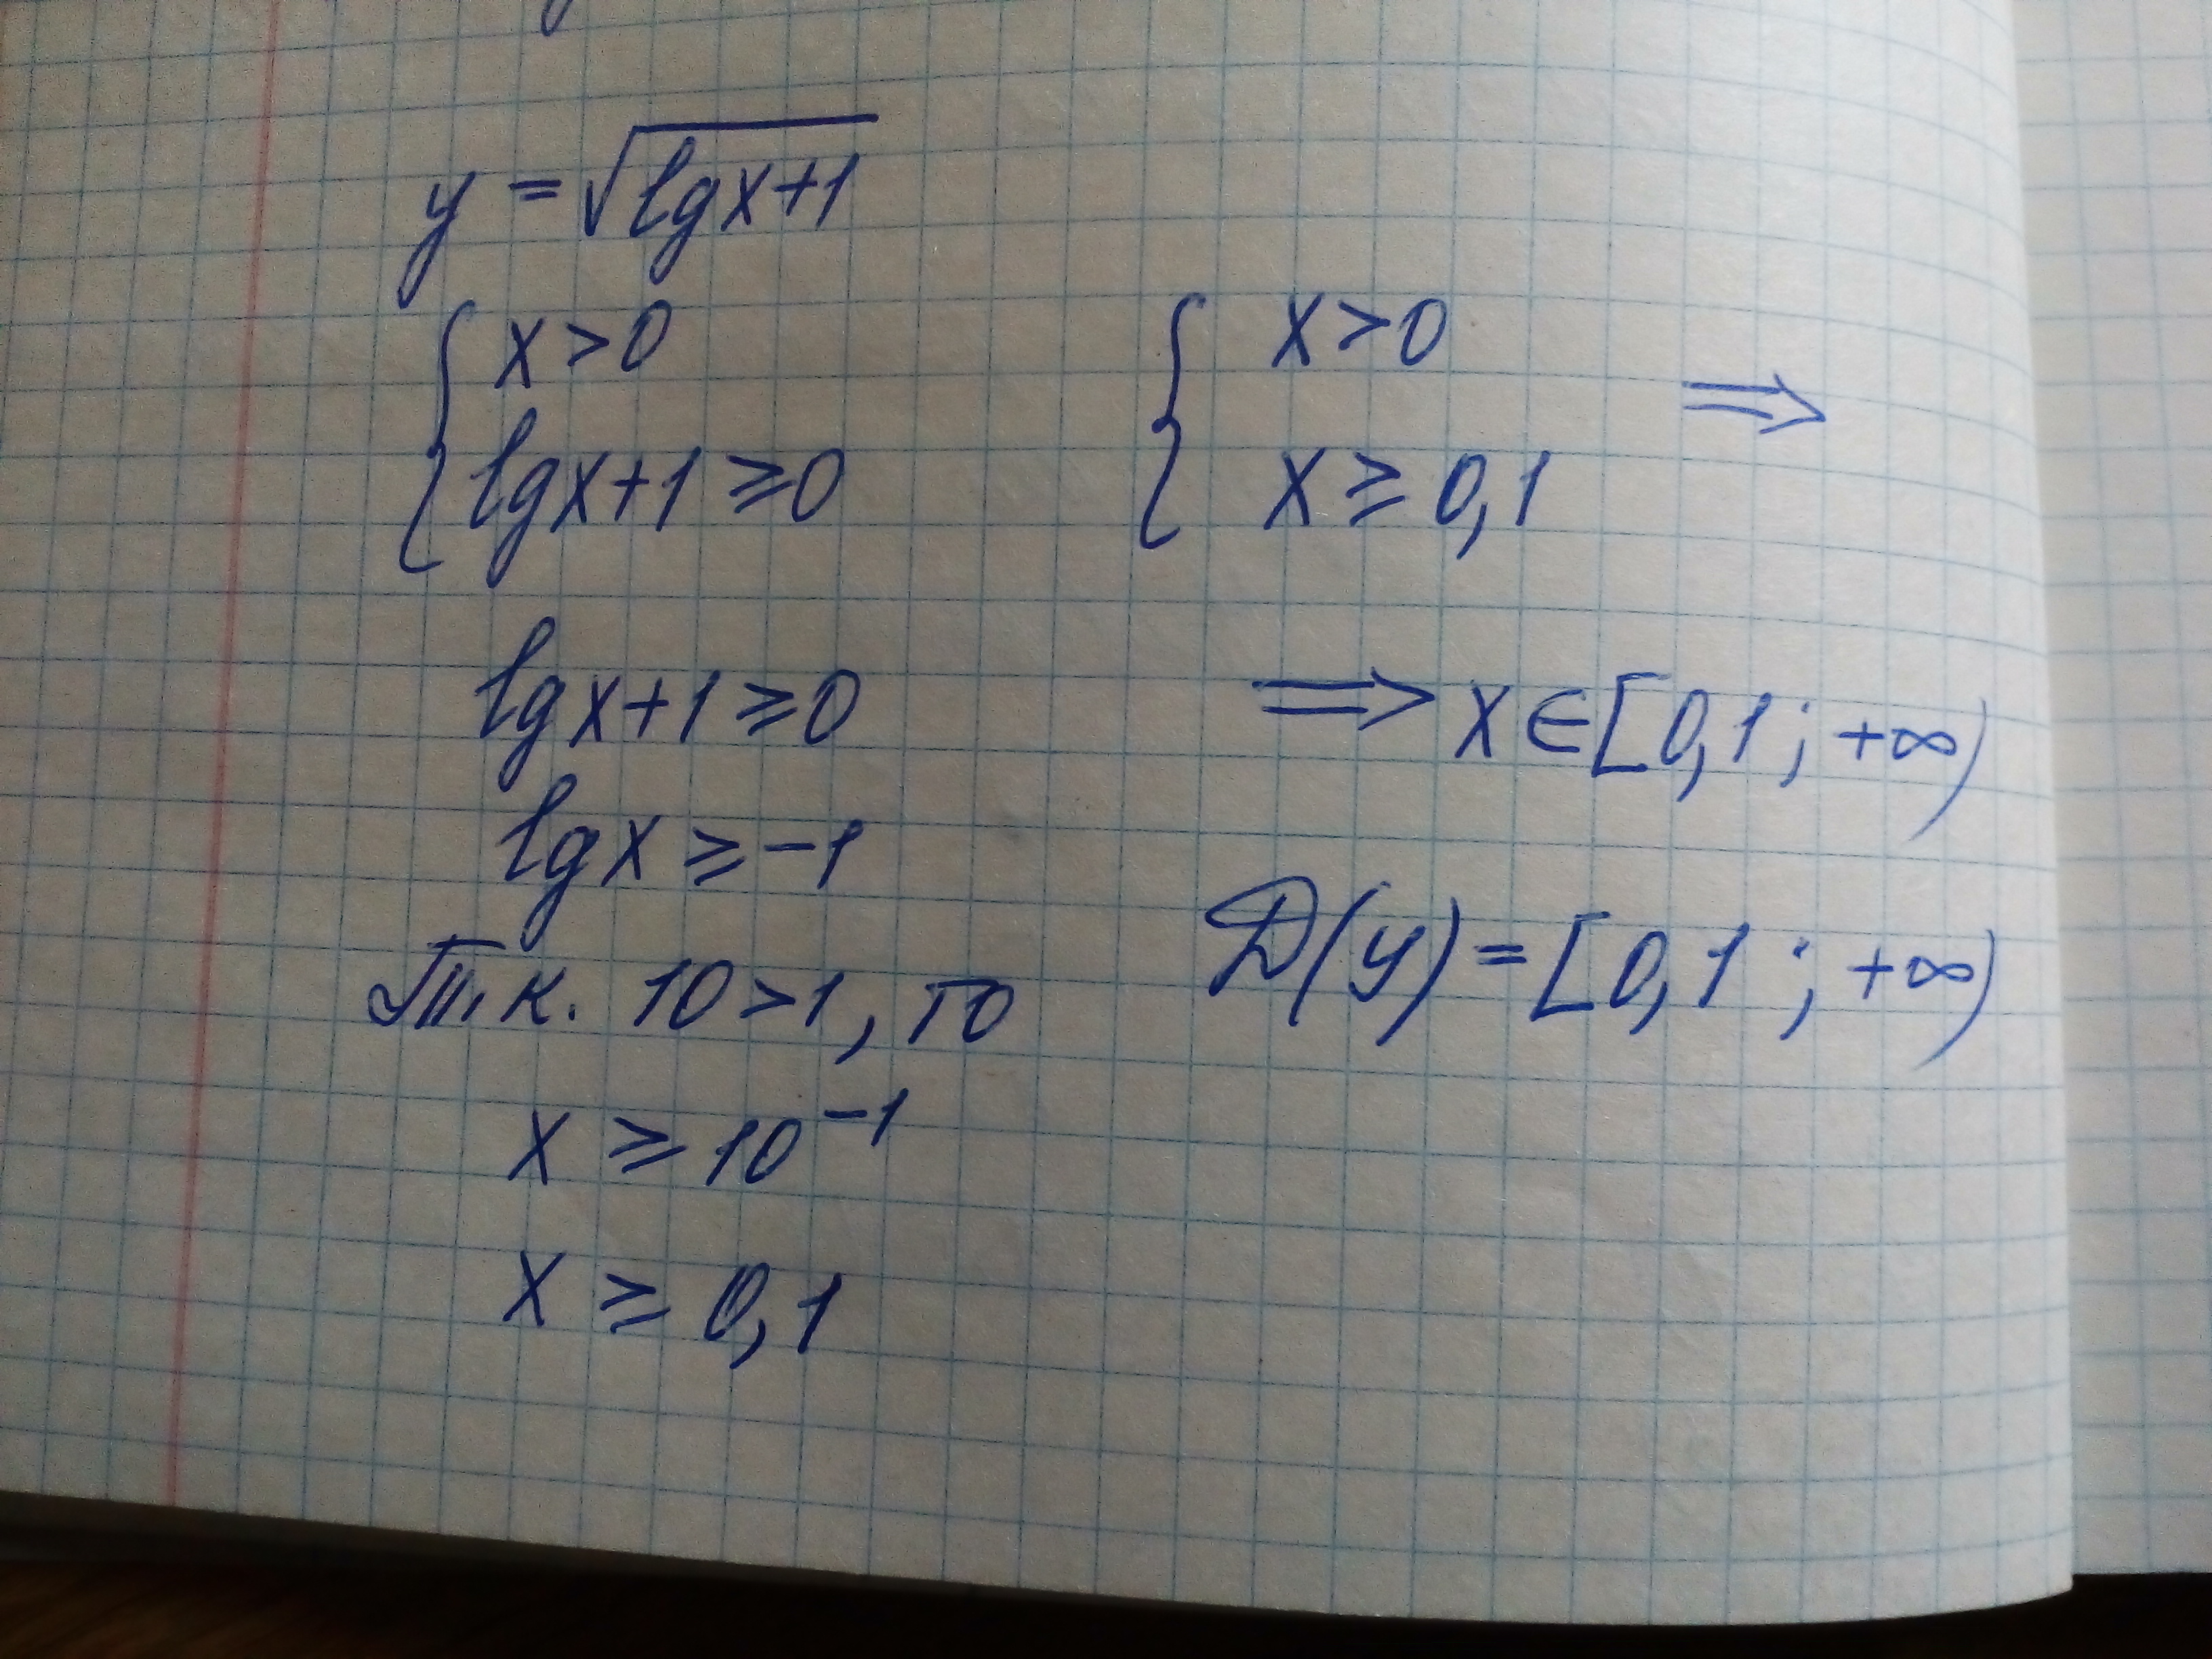 y = √lgx+1
{ x > 0
lgx+1 ⩾ 0
lgx+1 ⩾ 0
lgx ⩾ -1
Т.к. 10 > 1, то
x ⩾ 10⁻¹
x ⩾ 0,1
{ x > 0
x ⩾ 0,1 ⇒
⇒ x ∈ [0,1 ; +∞)
D(y) = [0,1 ; +∞)